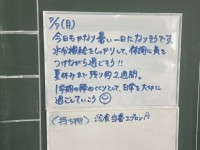 7/7(月)
今日もかなり暑い一日になりそうです
水分補給をしっかりして、体調に気を
つけながら過ごそう!!
夏休みまで残り約2週間。
1学期の締めくくりとして、日々を大切に
過ごしていこう
<持ち物> 給食当番エプロン